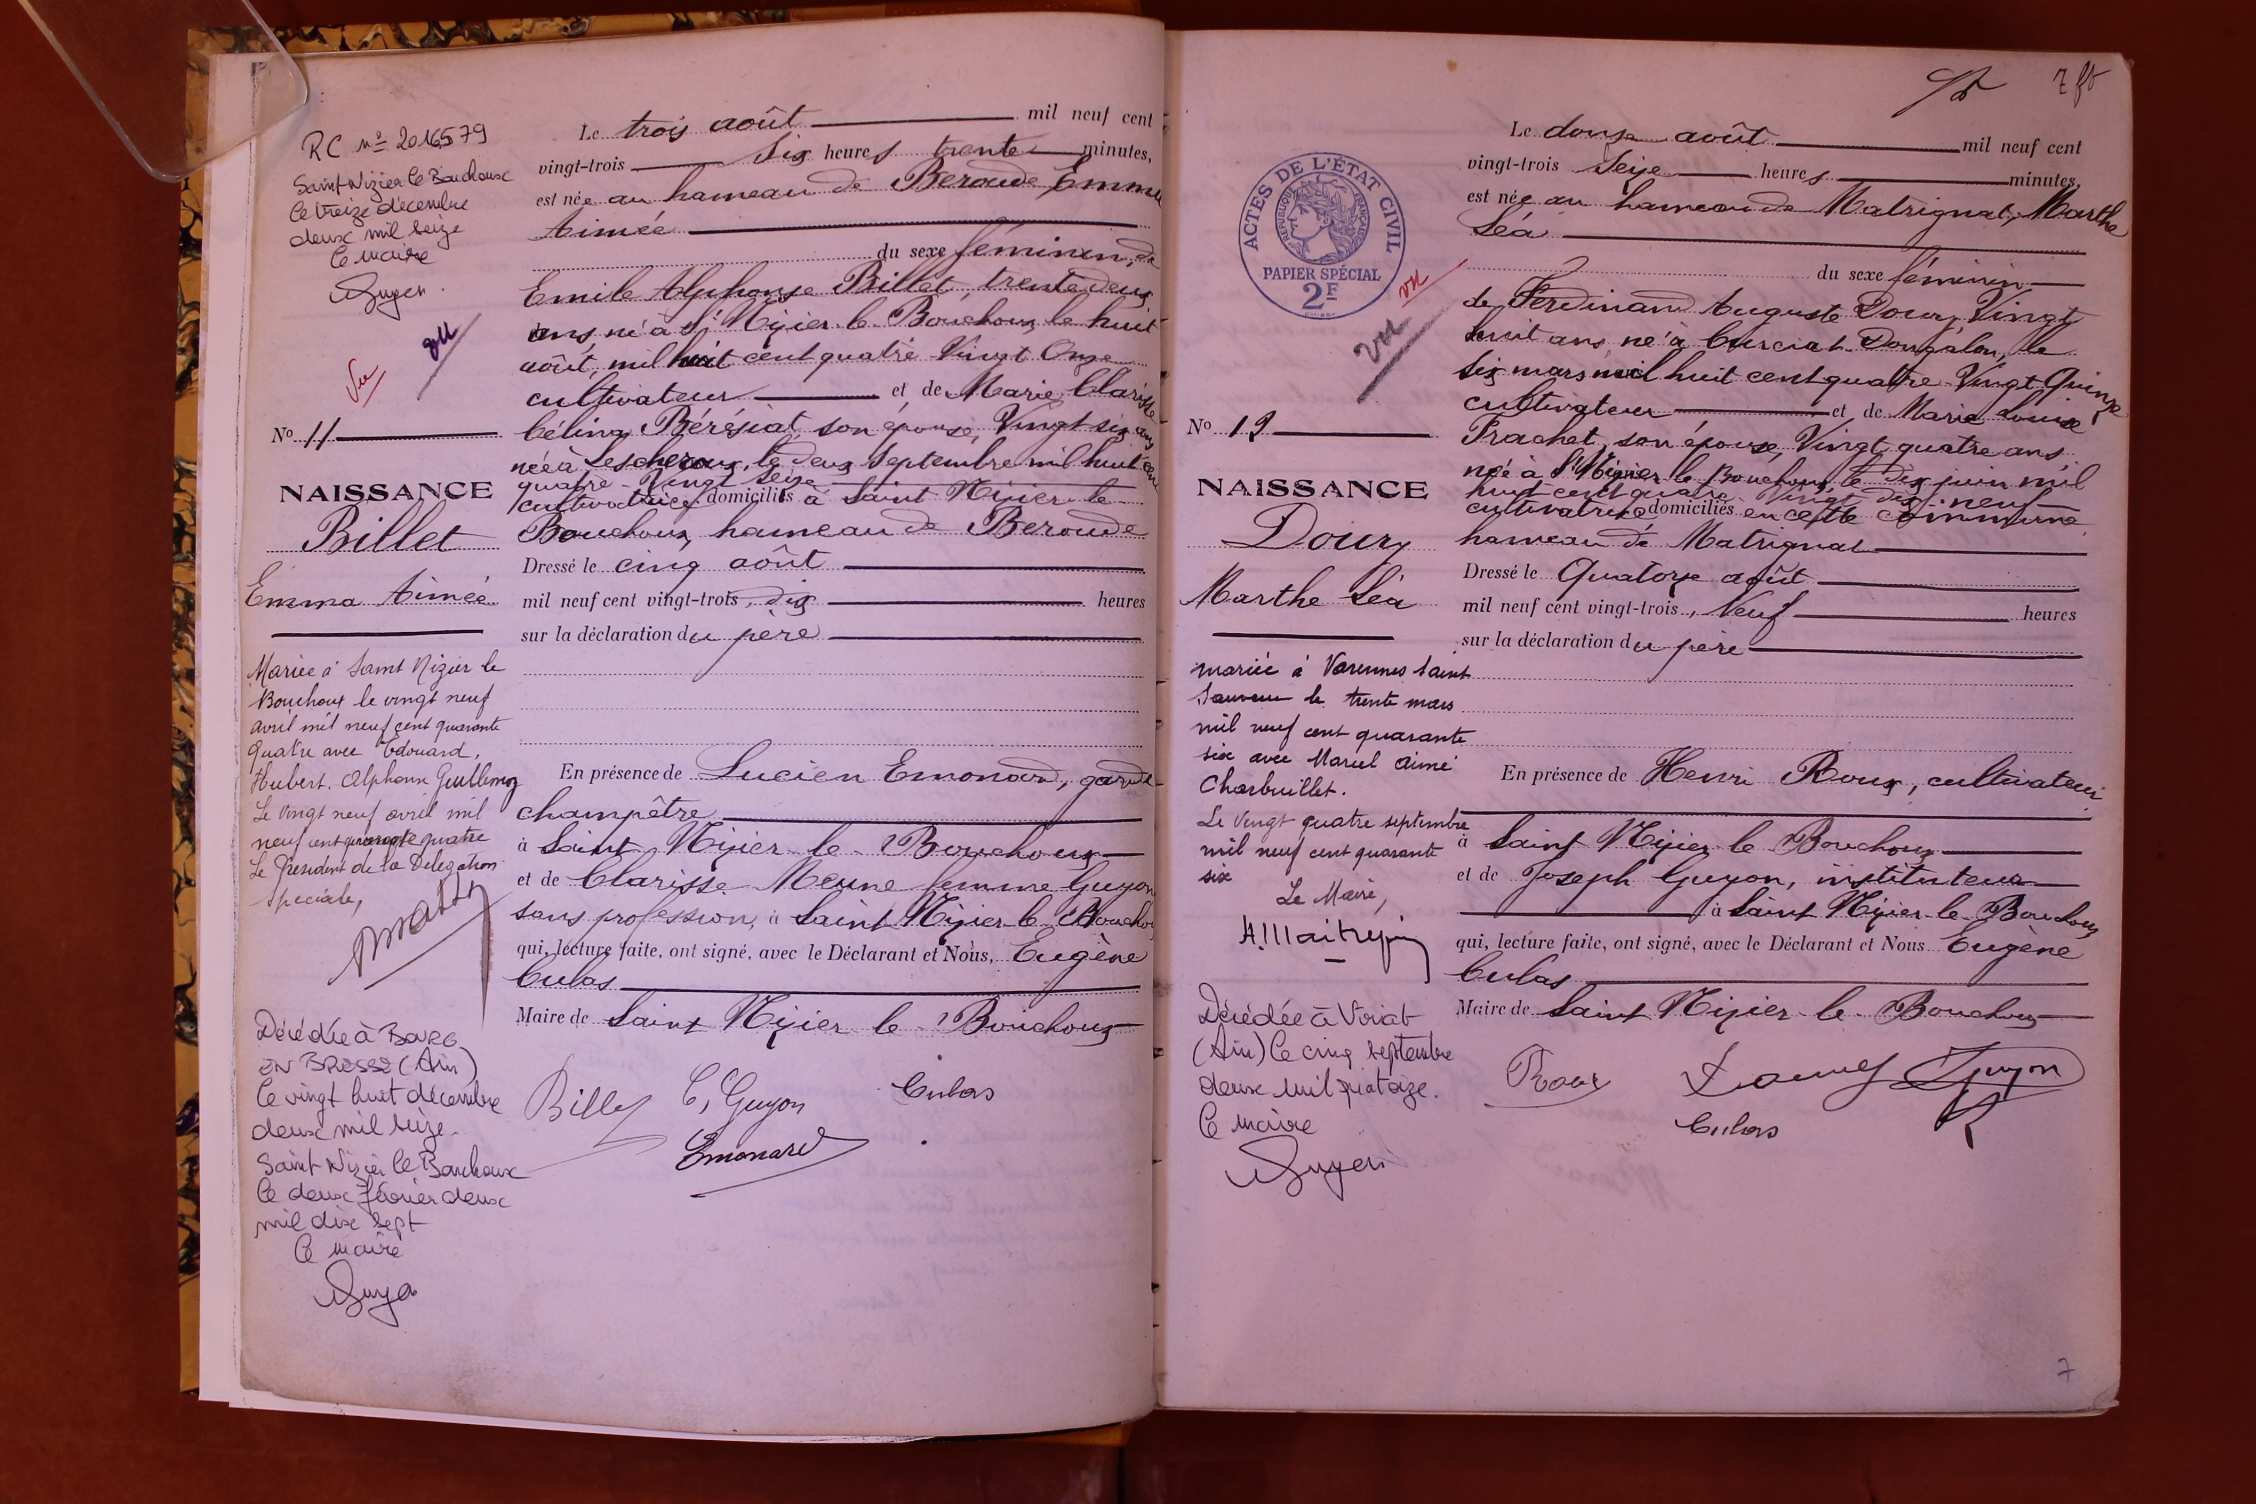 RC n° 2016579
Saint Nizier le Bouchoux
le treize décembre
deux mil seize
le maire
vu
Vu
No 11
NAISSANCE
Billet
Emma Aimée
Mariée à Saint Nizier le
Bouchoux le vingt neuf
avril mil neuf cent quarante
quatre avec Edouard
Hubert Alphonse
Le vingt neuf avril mil
neuf cent quarante quatre
Le Président de la Délégation
spéciale,
Décédée à BOURG
EN BRESSE (Ain)
le vingt huit décembre
deux mil seize.
Saint Nizier le Bouchoux
le deux février deux
mil dix sept
le maire
Le trois août mil neuf cent
vingt-trois six heures trente minutes,
est née au hameau de Beroude Emma
Aimée
du sexe féminin, de
Emile Alphonse Billet, trente deux
ans, né à St Nizier le Bouchoux le huit
août, mil huit cent quatre Vingt Onze
cultivateur et de Marie Clarisse
Célina Pérésiat, son épouse, Vingt six ans
née à Lescheroux, le deux Septembre mil huit cent
quatre-Vingt Seize
cultivatrice, domiciliés à Saint Nizier le
Bouchoux, hameau de Beroude
Dressé le cinq août
mil neuf cent vingt-trois, dix heures
sur la déclaration du père
En présence de Lucien Emonard, garde
champêtre
à Saint Nizier le Bouchoux
et de Clarisse Meune femme Guyon
sans profession, à Saint Nizier le Bouchoux
qui, lecture faite, ont signé, avec le Déclarant et Nous, Eugène
Culas
Maire de Saint Nizier le Bouchoux
Billet C, Guyon Culas
Emonard
7
ACTES DE L'ÉTAT CIVIL
RÉPUBLIQUE FRANÇAISE
PAPIER SPÉCIAL
2F
vu
vu
No 12
NAISSANCE
Doury
Marthe Léa
mariée à Varennes Saint
Sauveur le trente mars
mil neuf cent quarante
six avec Marcel Aimé
Charbuillet.
Le Vingt quatre septembre
mil neuf cent quarante
six
Le Maire,
Décédée à Viriat
(Ain) le cinq septembre
deux mil quatorze.
le maire
Le douze août mil neuf cent
vingt-trois Seize heures minutes,
est née au hameau de Matrignat, Marthe
Léa
du sexe féminin
de Ferdinand Auguste Doury, Vingt
huit ans, né à Curciat-Dongalon, le
six mars mil huit cent quatre-Vingt Quinze
cultivateur et de Marie Louise
Prachet, son épouse, Vingt quatre ans
née à St Nizier le Bouchoux, le dix juin mil
huit cent quatre-Vingt dix neuf
cultivatrice domiciliés en cette commune
hameau de Matrignat
Dressé le Quatorze août
mil neuf cent vingt-trois, Neuf heures
sur la déclaration du père
En présence de Henri Roux, cultivateur
à Saint Nizier le Bouchoux
et de Joseph Guyon, instituteur
à Saint Nizier le Bouchoux
qui, lecture faite, ont signé, avec le Déclarant et Nous Eugène
Culas
Maire de Saint Nizier le Bouchoux
Roux Guyon
Culas
7